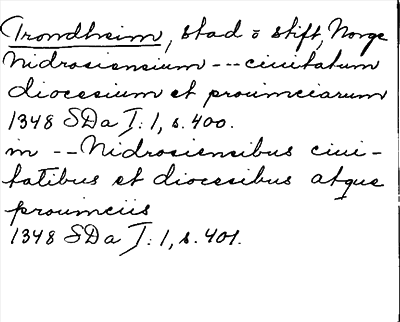 Trondheim, stad o stift, Norge
Nidrosiensium --- ciuitatum
diocesium et prouinciarum
1348 SDa I: 1, s. 400.
in -- Nidrosiensibus ciui-
tatibus et diocesibus atque
prouinciis
1348 SDa I: 1, s. 401.